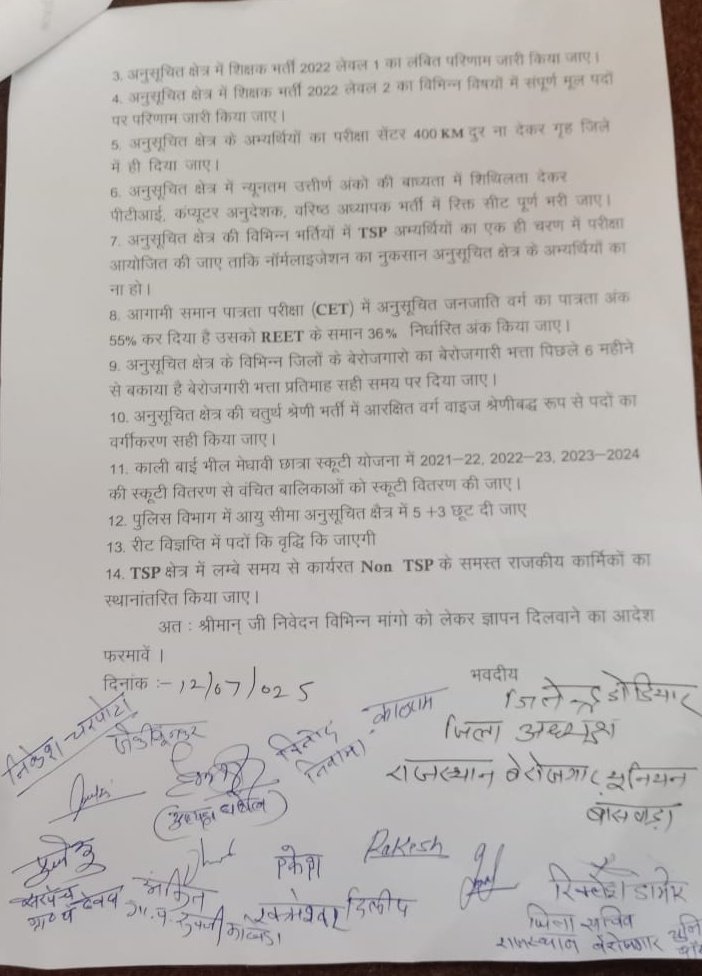 3. अनुसूचित क्षेत्र में शिक्षक भर्ती 2022 लेवल 1 का लंबित परिणाम जारी किया जाए।
4. अनुसूचित क्षेत्र में शिक्षक भर्ती 2022 लेवल 2 का विभिन्न विषयों में संपूर्ण मूल पदों
पर परिणाम जारी किया जाए।
5. अनुसूचित क्षेत्र के अभ्यर्थियों का परीक्षा सेंटर 400 KM दुर ना देकर गृह जिले
में ही दिया जाए।
6. अनुसूचित क्षेत्र में न्यूनतम उत्तीर्ण अंको की बाध्यता में शिथिलता देकर
पीटीआई, कंप्यूटर अनुदेशक, वरिष्ठ अध्यापक भर्ती में रिक्त सीट पूर्ण भरी जाए।
7. अनुसूचित क्षेत्र की विभिन्न भर्तियों में TSP अभ्यर्थियों का एक ही चरण में परीक्षा
आयोजित की जाए ताकि नॉर्मलाइजेशन का नुकसान अनुसूचित क्षेत्र के अभ्यर्थियों का
ना हो।
8. आगामी समान पात्रता परीक्षा (CET) में अनुसूचित जनजाति वर्ग का पात्रता अंक
55% कर दिया है उसको REET के समान 36% निर्धारित अंक किया जाए।
9. अनुसूचित क्षेत्र के विभिन्न जिलों के बेरोजगारो का बेरोजगारी भत्ता पिछले 6 महीने
से बकाया है बेरोजगारी भत्ता प्रतिमाह सही समय पर दिया जाए।
10. अनुसूचित क्षेत्र की चतुर्थ श्रेणी भर्ती में आरक्षित वर्ग वाइज श्रेणीबद्ध रूप से पदों का
वर्गीकरण सही किया जाए।
11. काली बाई भील मेधावी छात्रा स्कूटी योजना में 2021–22, 2022–23, 2023–2024
की स्कूटी वितरण से वंचित बालिकाओं को स्कूटी वितरण की जाए।
12. पुलिस विभाग में आयु सीमा अनुसूचित क्षैत्र में 5 +3 छूट दी जाए
13. रीट विज्ञप्ति में पदों कि वृद्धि कि जाएगी
14. TSP क्षेत्र में लम्बे समय से कार्यरत Non TSP के समस्त राजकीय कार्मिकों का
स्थानांतरित किया जाए।
अत : श्रीमान् जी निवेदन विभिन्न मांगो को लेकर ज्ञापन दिलवाने का आदेश
फरमावें ।
दिनांक :– 12/07/025
भवदीय
डोडियार
जिला अध्यक्ष
राजस्थान बेरोजगार यूनियन
बांसवाड़ा
निकेश चरपोटा
विनोद
निनामा
सरपंच
अंकित
राकेश
Rakesh
दिलीप
डामोर
जिला सचिव
राजस्थान बेरोजगार